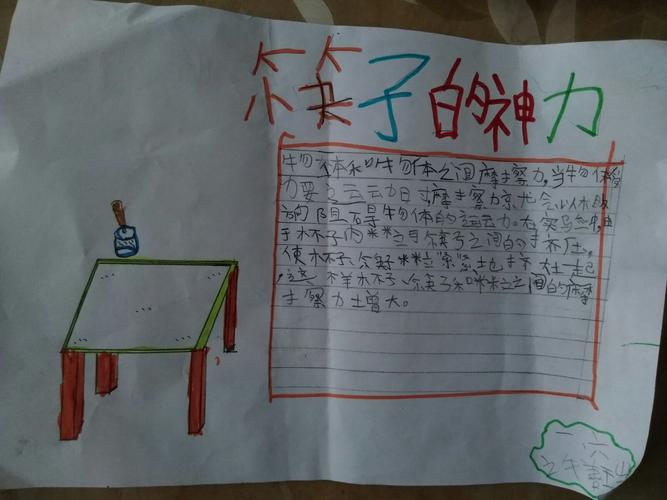 筷子的神力
物体和物体之间摩擦力,当物体
要运动时,摩擦力就会
向阻碍物体的运动。在实验中,由
于杯子内米粒与筷子之间的挤压,
使杯子、米粒紧紧地挤在一起
这样杯子、筷子和米粒之间的摩
擦力增大。
一六